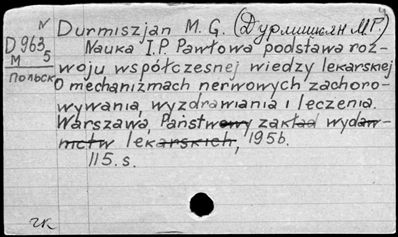 N
D 963
M 5
ПОЛЬСК
Durmiszjan M. G. (Дурмишьян МГ) 4
Nauka I.P. Pawłowa podstawa roz-
woju współczesnej wiedzy lekarskiej
O mechanizmach nerwowych zachoro-
wywania, wyzdrawiania i leczenia.
Warszawa, Państwowy zakład wydaw-
nictw lekarskich, 1956.
115. s.
чк